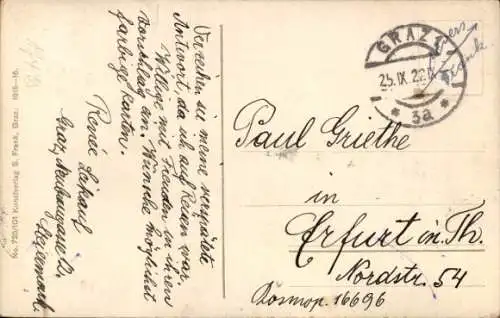 Verzeihen sie meine verspätete
Antwort, da ich auf Reisen war.
Willige mit Freuden in ihren
Vorschlag an. Wünsche möglichst
farbige Karten.
Renée
Graz,
Steiermark
No. 755/101 Kunstverlag S. Frank, Graz. 1915-16.
GRAZ 1
25.IX.22
* 3a *
Paul Griethe
in
Erfurt in Th.
Nordstr. 54
Kosmop. 16696